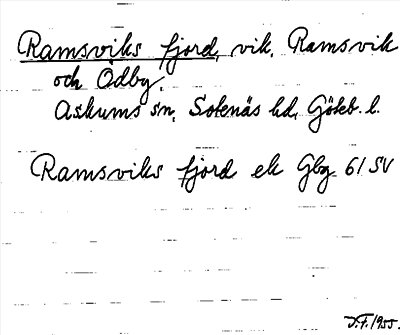 Ramsviks fjord, vik, Ramsvik
och Ödby,
Askums sn, Sotenäs hd, Göteb. l.
Ramsviks fjord ek Gbg 61 SV
J.F. 1955.